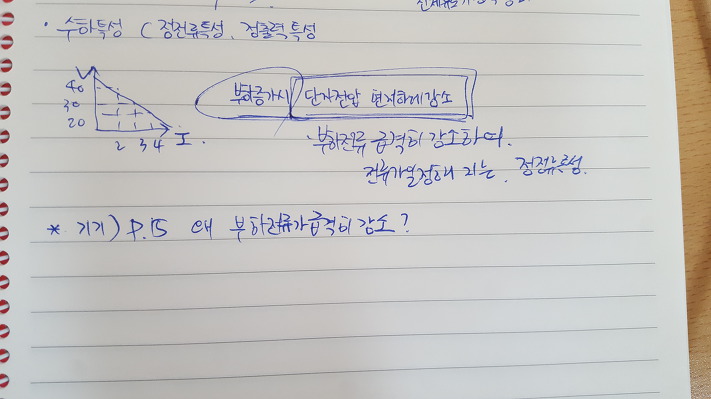 · 수하특성 ( 정전류특성, 정출력 특성
V
40
30
20
2 3 4 I.
부하증가시 단자전압 현저하게 감소
· 부하전류 급격히 감소하여.
전류가일정해 지는. 정전류특성.
* 기기) P.15 왜 부하전류가급격히 감소?